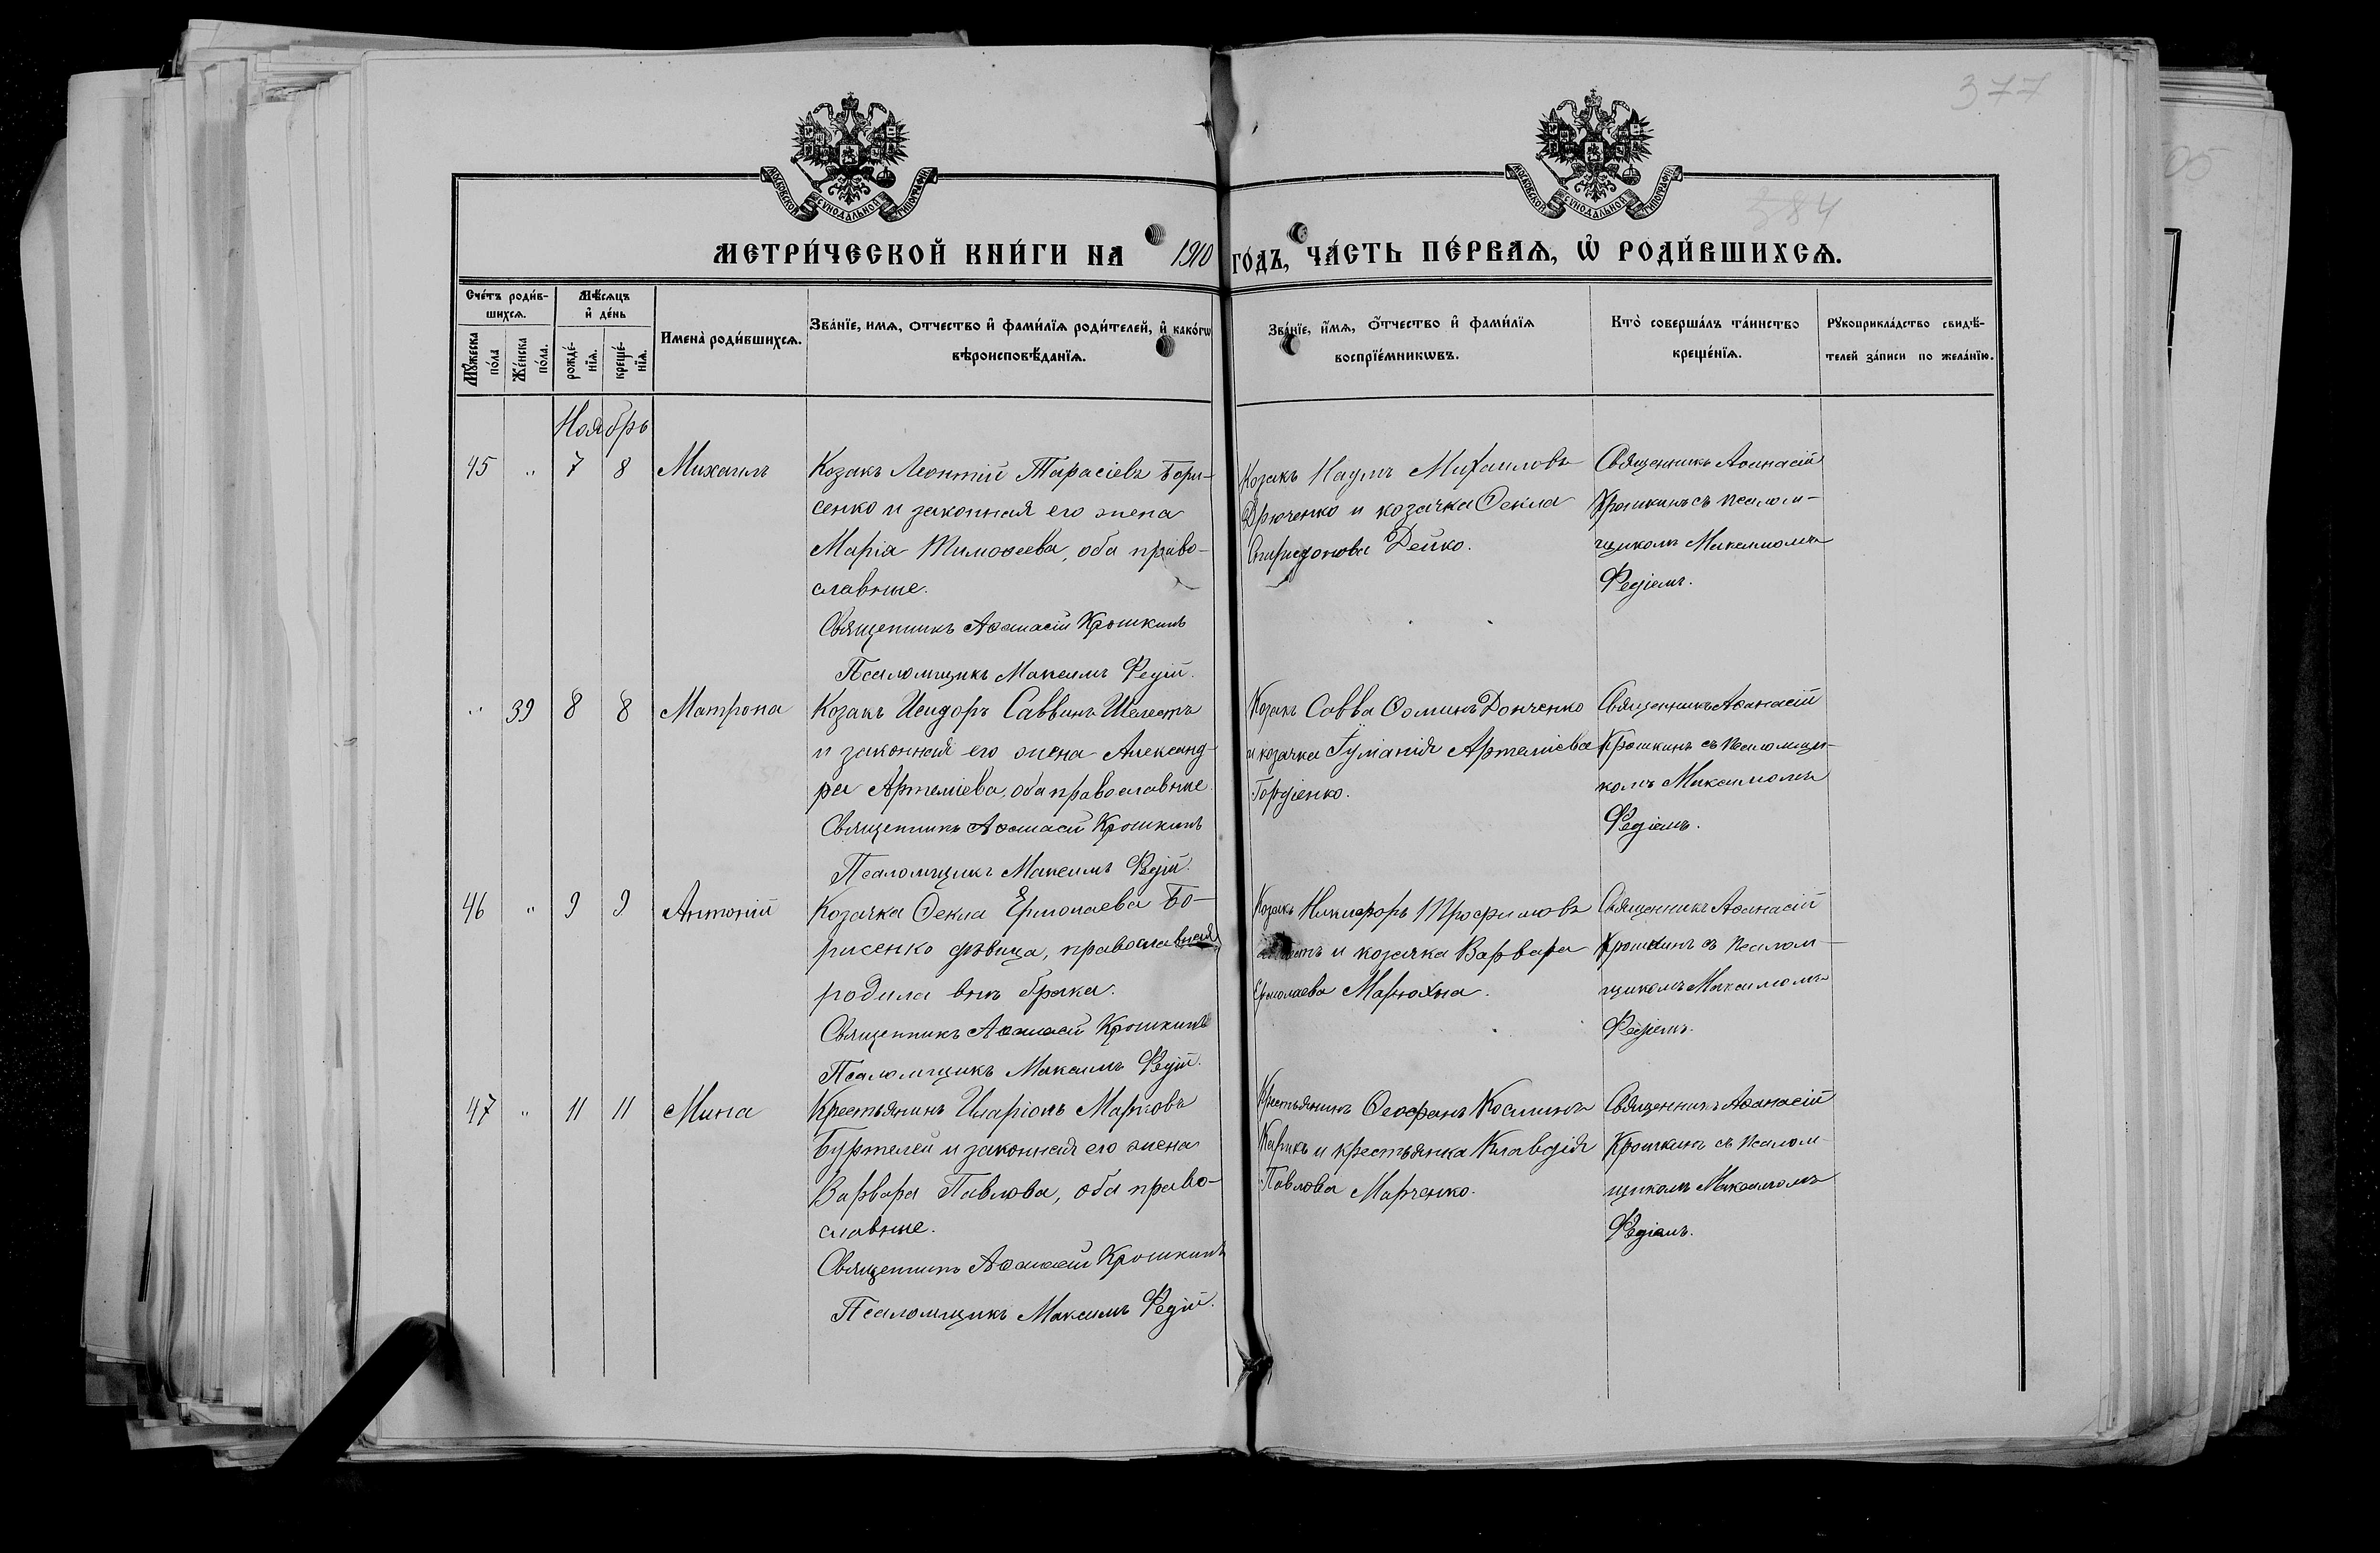 377
384
МОСКОВСКОЙ СѴНОДАЛЬНОЙ ТИПОГРАФІИ
МОСКОВСКОЙ СѴНОДАЛЬНОЙ ТИПОГРАФІИ
МЕТРИ́ЧЕСКОЙ КНИ́ГИ НА 1910 ГО́ДЪ, ЧА́СТЬ ПЕ́РВАѦ, Ѡ҆ РОДИ́ВШИХСѦ.
Сче́тъ роди́в-
шихсѧ.
Мꙋ́жеска
по́ла
Же́нска
по́ла.
Мѣ́сѧцъ
и҆ де́нь
рожде́-
нїѧ.
креще́-
нїѧ.
Имена̀ роди́вшихсѧ.
Зва́нїе, имѧ, ѻтчество и҆ фами́лїѧ роди́телей, и҆ како́гѡ
вѣроисповѣ́данїѧ.
Зва́нїе, и҆́мѧ, ѻ҆́тчество и҆ фами́лїѧ
воспрїе́мникѡвъ.
Кто̀ соверша́лъ та́инство
креще́нїѧ.
Рꙋкоприкла́дство свидѣ́-
телей за́писи по жела́нїю.
Ноябрь
45 " 7 8 Михаилъ
Козакъ Леонтій Тарасіевъ Бори-
сенко и законная его жена
Марія Тимоѳеева, оба право-
славные.
Священникъ Аѳанасій Крошкинъ
Псаломщикъ Максимъ Редій.
Козакъ Наумъ Михаиловъ
Дрюченко и козачка Ѳекла
Спиридонова Дейко.
Священникъ Аѳанасій
Крошкинъ съ псалом-
щикомъ Максимомъ
Редіемъ.
" 39 8 8 Матрона
Козакъ Исидоръ Саввинъ Шелестъ
и законная его жена Александ-
ра Артеміева, оба православные.
Священникъ Аѳанасій Крошкинъ
Псаломщикъ Максимъ Редій.
Козакъ Савва Ѳоминъ Донченко
и козачка Артеміева
Гордіенко.
Священникъ Аѳанасій
Крошкинъ съ псаломщи-
комъ Максимомъ
Редіемъ.
46 " 9 9 Антоній
Козачка Ѳекла Ермолаева Бо-
рисенко дѣвица, православная
родила внѣ брака.
Священникъ Аѳанасій Крошкинъ
Псаломщикъ Максимъ Редій.
Козакъ Никифоръ Трофимовъ
и козачка Варвара
Ермолаева Марюхна.
Священникъ Аѳанасій
Крошкинъ съ псалом-
щикомъ Максимомъ
Редіемъ.
47 " 11 11 Мина
Крестьянинъ Иларіонъ Марковъ
Буртелей и законная его жена
Варвара Павлова, оба право-
славные.
Священникъ Аѳанасій Крошкинъ
Псаломщикъ Максимъ Редій.
Крестьянинъ Ѳеофанъ Косминъ
и крестьянка Клавдія
Павлова Марченко.
Священникъ Аѳанасій
Крошкинъ съ псалом-
щикомъ Максимомъ
Редіемъ.